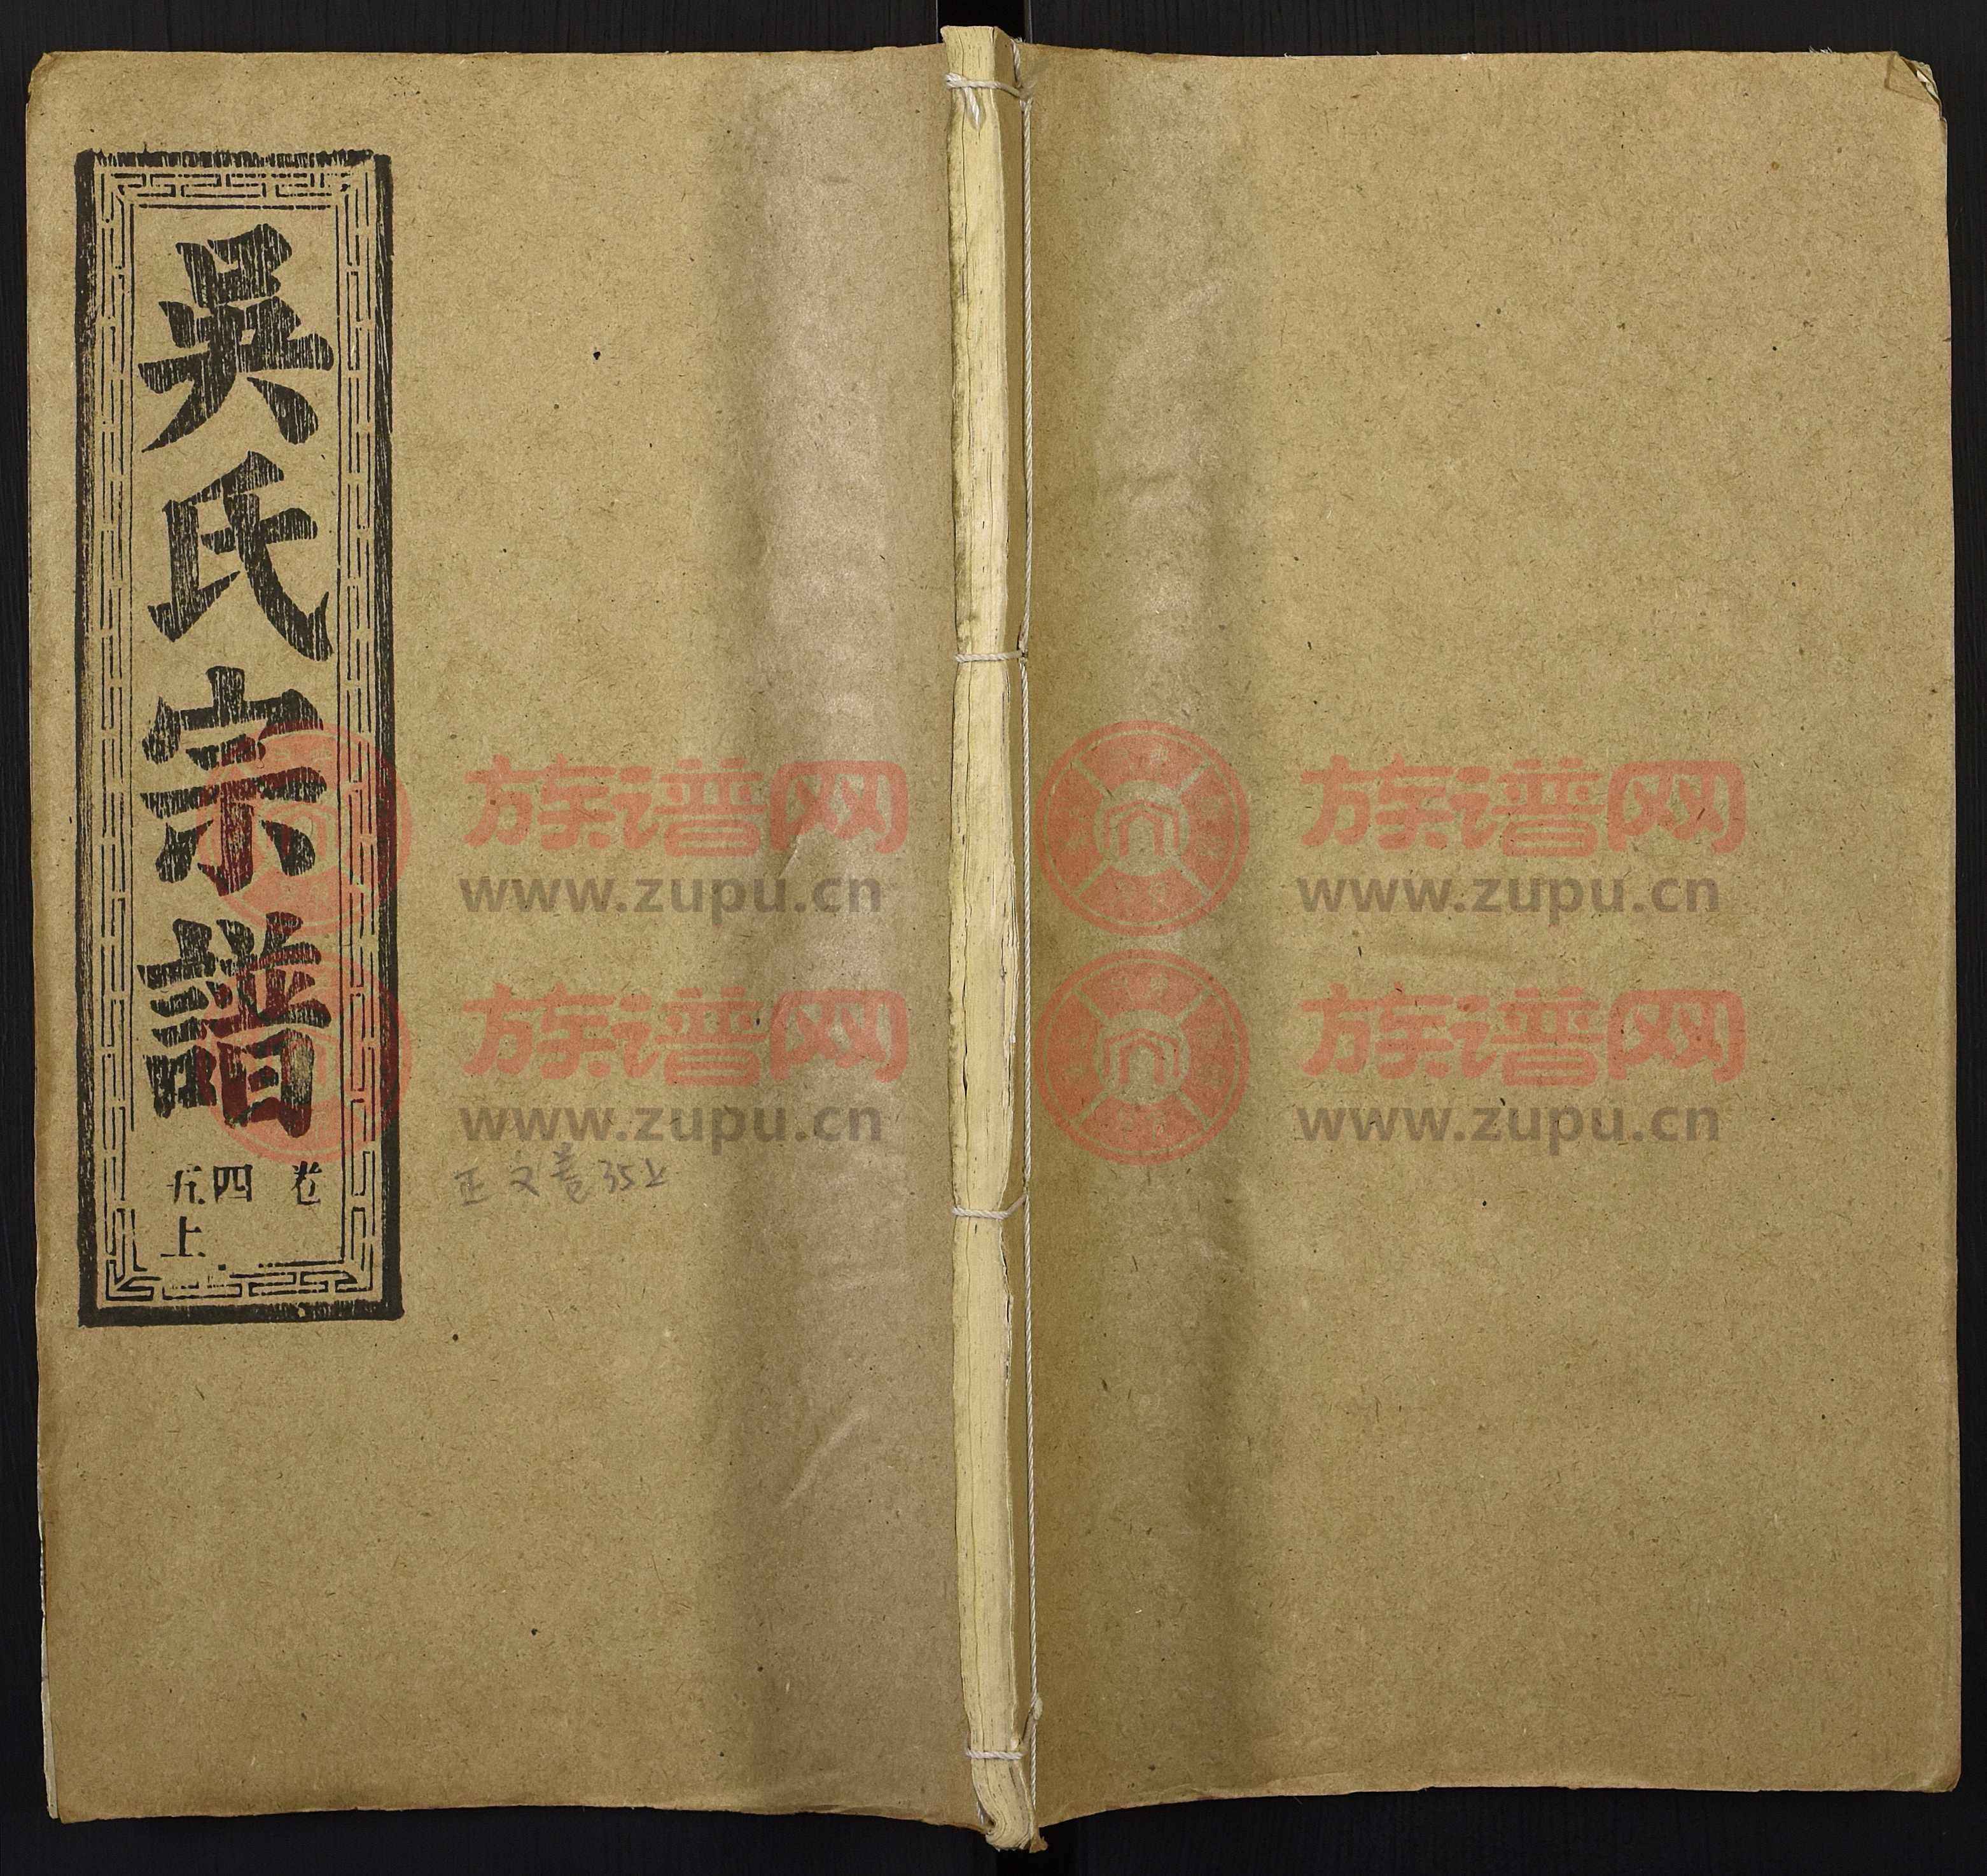 吳氏宗譜
卷
四
五上
正文卷35上
族谱网 族谱网
www.zupu.cn www.zupu.cn
族谱网 族谱网
www.zupu.cn www.zupu.cn